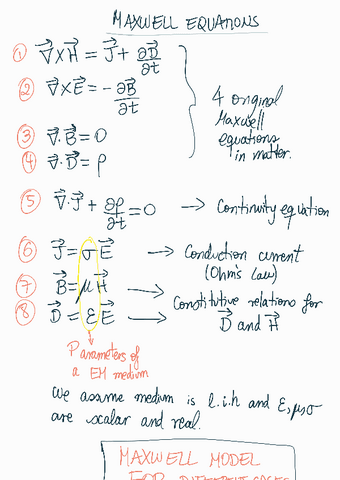 MAXWELL EQUATIONS
① ∇⃗×H⃗ = J⃗ + ∂D⃗/∂t
② ∇⃗×E⃗ = -∂B⃗/∂t
4 original
Maxwell
equations
in matter.
③ ∇⃗·B⃗ = 0
④ ∇⃗·D⃗ = ρ
⑤ ∇⃗·J⃗ + ∂ρ/∂t = 0 → Continuity equation
⑥ J⃗ = σE⃗ → Conduction current
(Ohm's law)
⑦ B⃗ = μH⃗ →
⑧ D⃗ = εE⃗ →
Constitutive relations for
D⃗ and H⃗
Parameters of
a EM medium
We assume medium is l.i.h and ε,μ,σ
are scalar and real.
MAXWELL MODEL
FOR DIFFERENT CASES